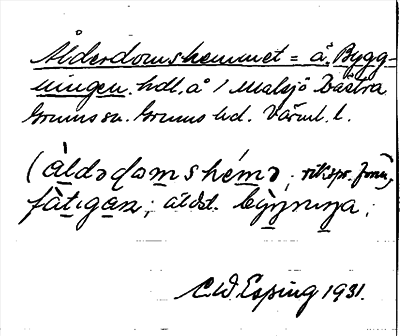 Ålderdomshemmet = å. Bygg-
ningen. hdl. å / Malsjö Båstra
Grums sn. Grums hd. Värml. l.
(àldədomshémə; riksspr. fràn,
fàtigan; äldst. býgniŋa;
C.W. Esping 1931.